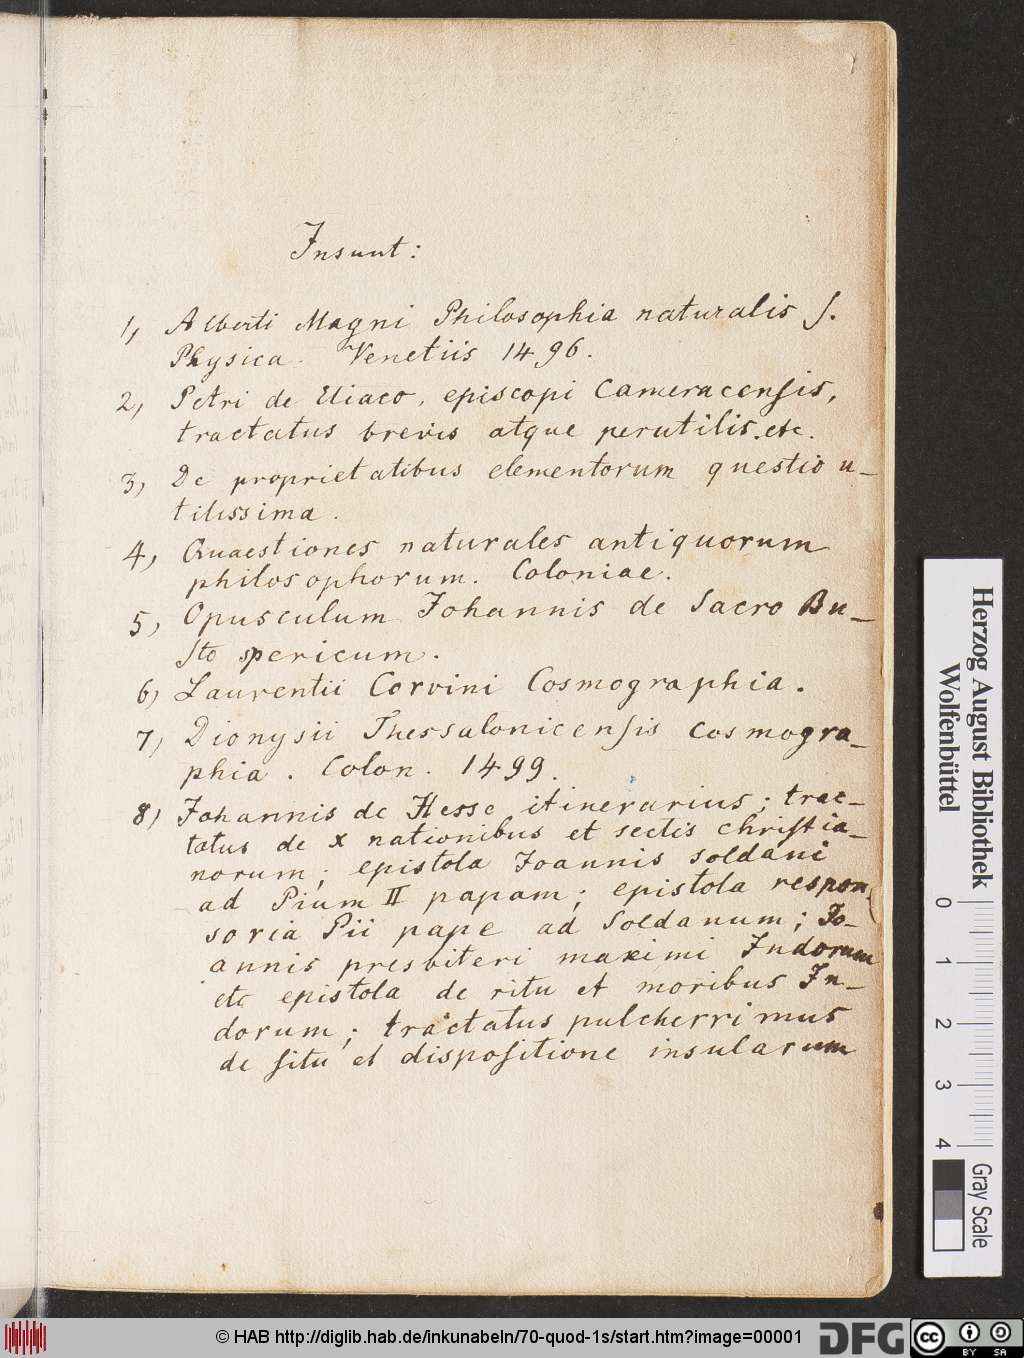 Insunt:
1, Alberti Magni Philosophia naturalis s.
Physica. Venetiis 1496.
2, Petri de Eliaco, episcopi Cameracensis,
tractatus brevis atque perutilis. etc.
3, De proprietatibus elementorum questio u-
tilissima.
4, Quaestiones naturales antiquorum
philosophorum. Coloniae.
5, Opusculum Johannis de Sacro Bu-
sto spericum.
6, Laurentii Corvini Cosmographia.
7, Dionysii Thessalonicensis cosmogra-
phia. Colon. 1499.
8, Johannis de Hesse itinerarius; trac-
tatus de X nationibus et sectis christia-
norum; epistola Joannis soldani
ad Pium II papam; epistola respon-
soria Pii pape ad Soldanum; Jo-
annis presbiteri maximi Indorum
etc epistola de ritu et moribus In-
dorum; tractatus pulcherrimus
de situ et dispositione insularum
Herzog August Bibliothek
Wolfenbüttel
0 1 2 3 4
Gray Scale
© HAB http://diglib.hab.de/inkunabeln/70-quod-1s/start.htm?image=00001
DFG
cc BY SA